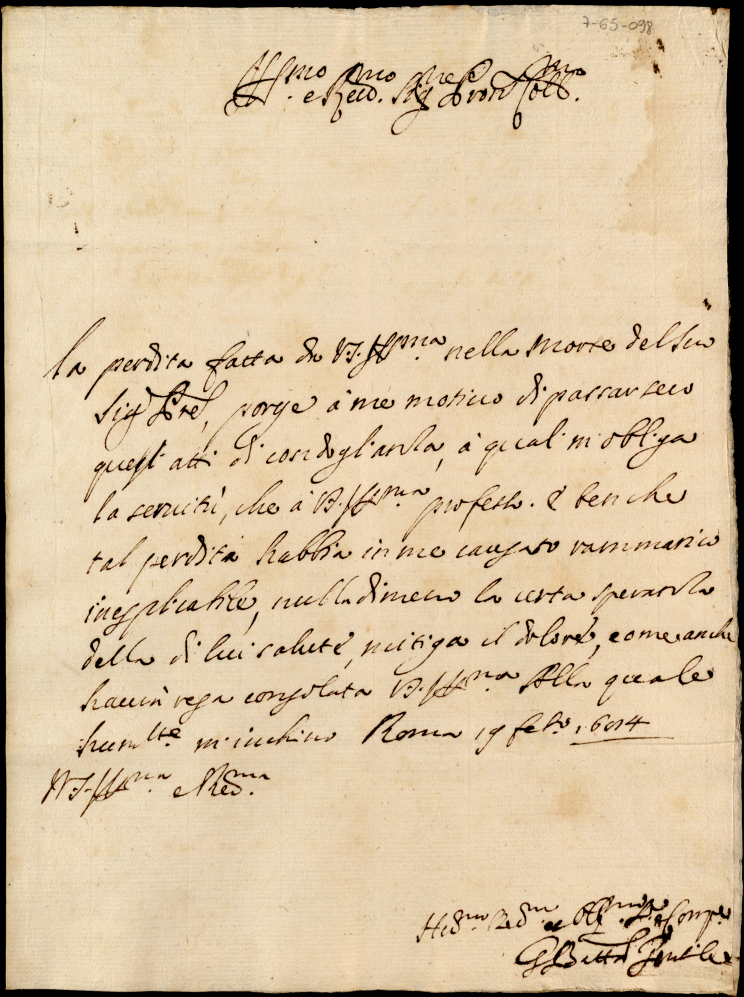 7-65-098
Ill.mo e Rev.mo Sig.re Pron Coll.mo
la perdita fatta da V.S. Ill.ma nella Morte del suo
Sig.r Pre, porge à me motivo di passar seco
quegli atti di condoglianza, à quali m'obliga
la servitù, che à V.S. Ill.ma professo. È benche
tal perdita habbia in me causato rammarico
inesplicabile, nulladimeno la certa speranza
della di lui salute, mitiga il dolore, come anche
havrà resa consolata V.S. Ill.ma Alla quale
hum.te m'inchino Roma 19 feb.o
V.S. Ill.ma e Rev.ma
G Batta Gentile